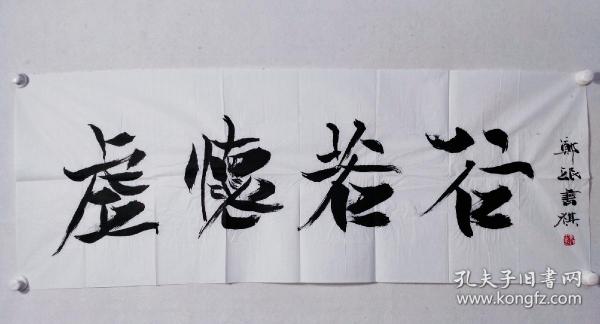 虚懷若谷
孔夫子旧书网
www.kongfz.com